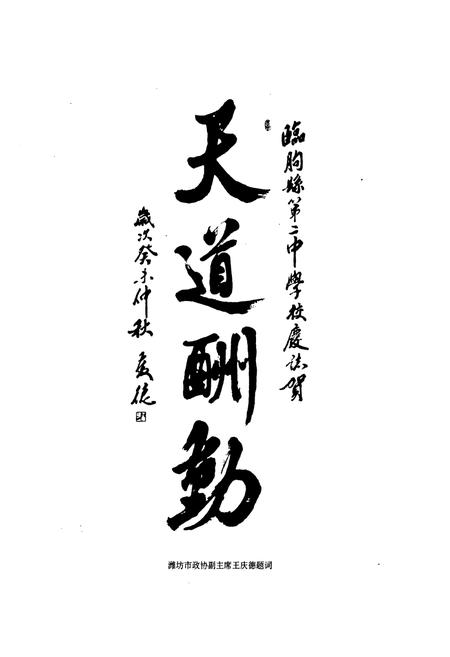 臨朐縣第二中學校慶誌賀
天道酬勤
歲次癸未仲秋 慶德
潍坊市政协副主席王庆德题词